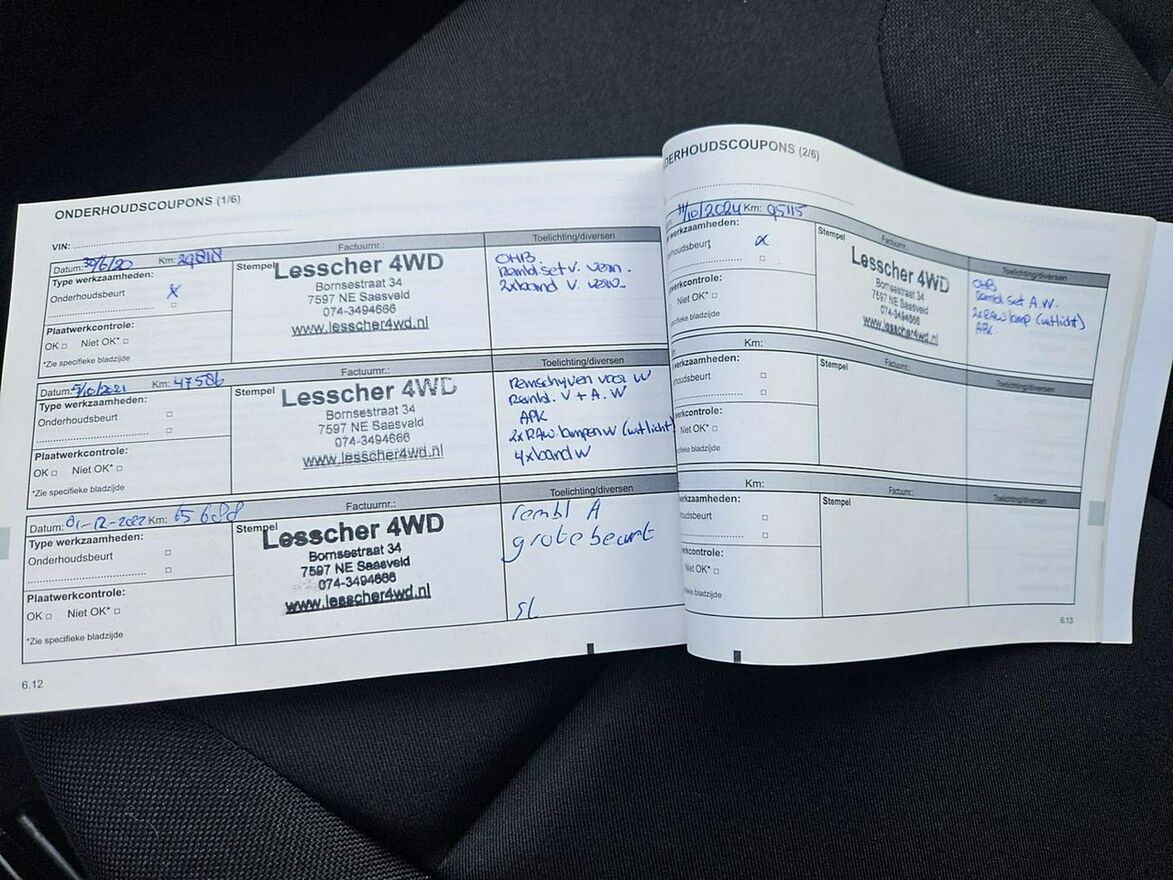 ONDERHOUDSCOUPONS (1/6)
VIN:
Datum: 30/6/20 Km: 29818
Type werkzaamheden:
Onderhoudsbeurt X
Plaatwerkcontrole:
OK □ Niet OK* □
*Zie specifieke bladzijde
Factuurnr.:
Stempel
Lesscher 4WD
Bornsestraat 34
7597 NE Saasveld
074-3494666
www.lesscher4wd.nl
Toelichting/diversen
OHB
2x band v.
Datum: 5/10/2021 Km: 47586
Type werkzaamheden:
Onderhoudsbeurt □
Plaatwerkcontrole:
OK □ Niet OK* □
*Zie specifieke bladzijde
Factuurnr.:
Stempel
Lesscher 4WD
Bornsestraat 34
7597 NE Saasveld
074-3494666
www.lesscher4wd.nl
Toelichting/diversen
Remschyven voor W
V + A. W
APK
2x RAW lampen W (uitlicht)
4x band W
Datum: 01-12-2022 Km: 65688
Type werkzaamheden:
Onderhoudsbeurt □
Plaatwerkcontrole:
OK □ Niet OK* □
*Zie specifieke bladzijde
Factuurnr.:
Stempel
Lesscher 4WD
Bornsestraat 34
7597 NE Saasveld
074-3494666
www.lesscher4wd.nl
Toelichting/diversen
rembl A
grote beurt
6.12
DERHOUDSCOUPONS (2/6)
11/10/2024 Km: 95115
werkzaamheden:
houdsbeurt X
werkcontrole:
Niet OK* □
ecifieke bladzijde
Factuurnr.
Stempel
Lesscher 4WD
Bornsestraat 34
7597 NE Saasveld
074-3494666
www.lesscher4wd.nl
Toelichting/diversen
OHB
Rembl set A.W.
2x RAW lamp (uitlicht)
APK
Km:
werkzaamheden:
houdsbeurt □
werkcontrole:
Niet OK* □
ifieke bladzijde
Factuurnr.:
Stempel
Toelichting/diversen
Km:
werkzaamheden:
udsbeurt □
rkcontrole:
Niet OK* □
fieke bladzijde
Factuurnr.:
Stempel
Toelichting/diversen
6.13